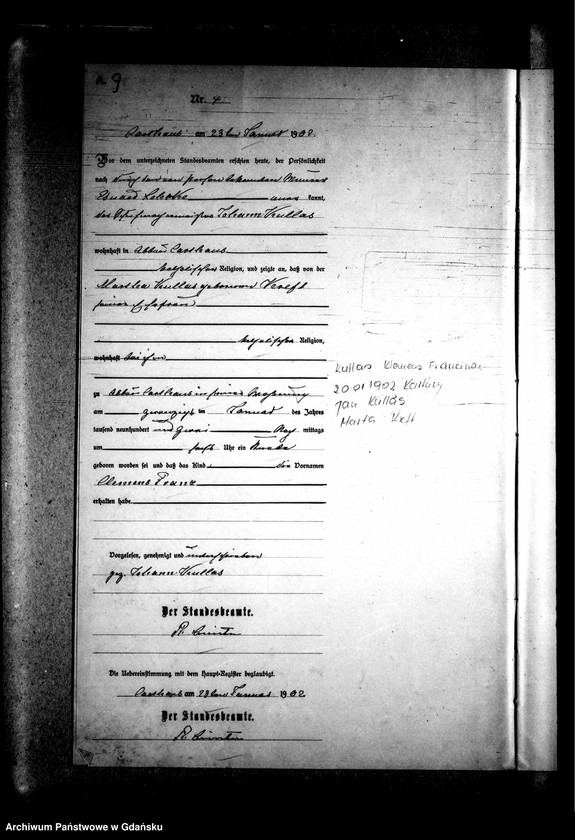 A. 9
Nr. 4
Carthaus am 23ten Januar 1902.
Vor dem unterzeichneten Standesbeamten erschien heute, der Persönlichkeit
nach durch den von Person bekannten Maurer
kannt,
Johann Kullas
wohnhaft in Abbau Carthaus
katholischer Religion, und zeigte an, daß von der
Martha Kullas geborenen Kreft
seiner Ehefrau
katholischer Religion,
wohnhaft bei ihm
zu Abbau Carthaus in seiner Wohnung
am zwanzigsten Januar des Jahres
tausend neunhundert und zwei Nachmittags
um Uhr ein Knabe
geboren worden sei und daß das Kind die Vornamen
Clemens Franz
erhalten habe.
Vorgelesen, genehmigt und unterschrieben
gez. Johann Kullas
Der Standesbeamte.
Die Uebereinstimmung mit dem Haupt-Register beglaubigt.
Carthaus am 23ten Januar 1902
Der Standesbeamte.
Kullas Klemens Franciszek
20.01.1902 Kartuzy
Jan Kullas
Marta Kreft
Archiwum Państwowe w Gdańsku